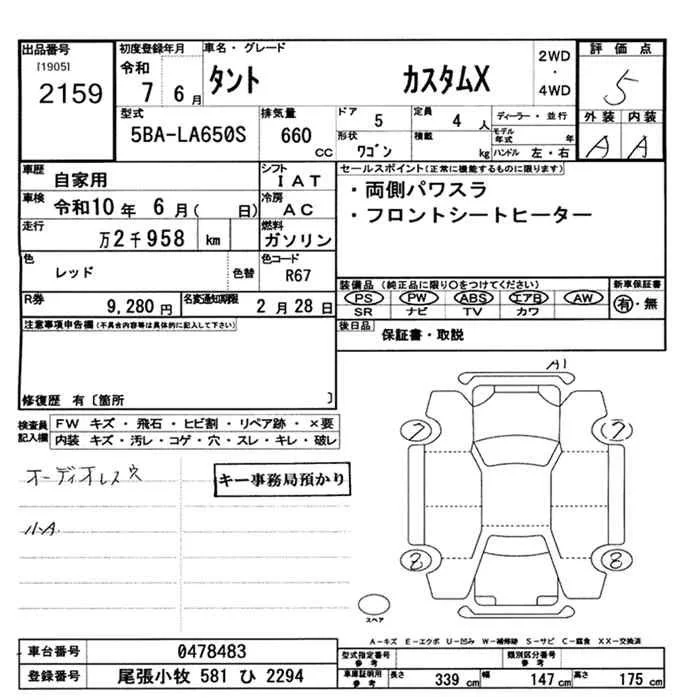 出品番号
[1905]
2159
初度登録年月
令和
7 6月
車名・グレード
タント カスタムX
2WD
・
4WD
評価点
5
外装 内装
A A
型式
5BA-LA650S
排気量
660 CC
ドア
5
定員
4 人
ディーラー・並行
形状
ワゴン
積載
kg
モデル年式 年
ハンドル 左・右
車歴
自家用
シフト
IAT
車検
令和10年 6月( 日)
冷房
AC
走行
万2千958 km
燃料
ガソリン
色
レッド
色替
色コード
R67
R券
9,280円
名変通知期限
2月28日
セールスポイント(正常に機能するものに限ります)
・両側パワスラ
・フロントシートヒーター
装備品(純正品に限り○をつけてください)
PS PW ABS エアB AW
SR ナビ TV カワ
新車保証書
有・無
後日品
保証書・取説
注意事項申告欄(不具合内容等は具体的に記入して下さい)
修復歴 有〔箇所 〕
検査員記入欄
FW キズ・飛石・ヒビ割・リペア跡・×要
内装 キズ・汚レ・コゲ・穴・スレ・キレ・破レ
オーディオレス穴
キー事務局預かり
A1
7 7
8 8
スペア
A-キズ E-エクボ U-凹み W-補修跡 S-サビ C-腐食 XX-交換済
車台番号
0478483
登録番号
尾張小牧 581 ひ 2294
型式指定番号
参考
類別区分番号
参考
車庫証明用
参考
長さ 339 cm
幅 147 cm
高さ 175 cm